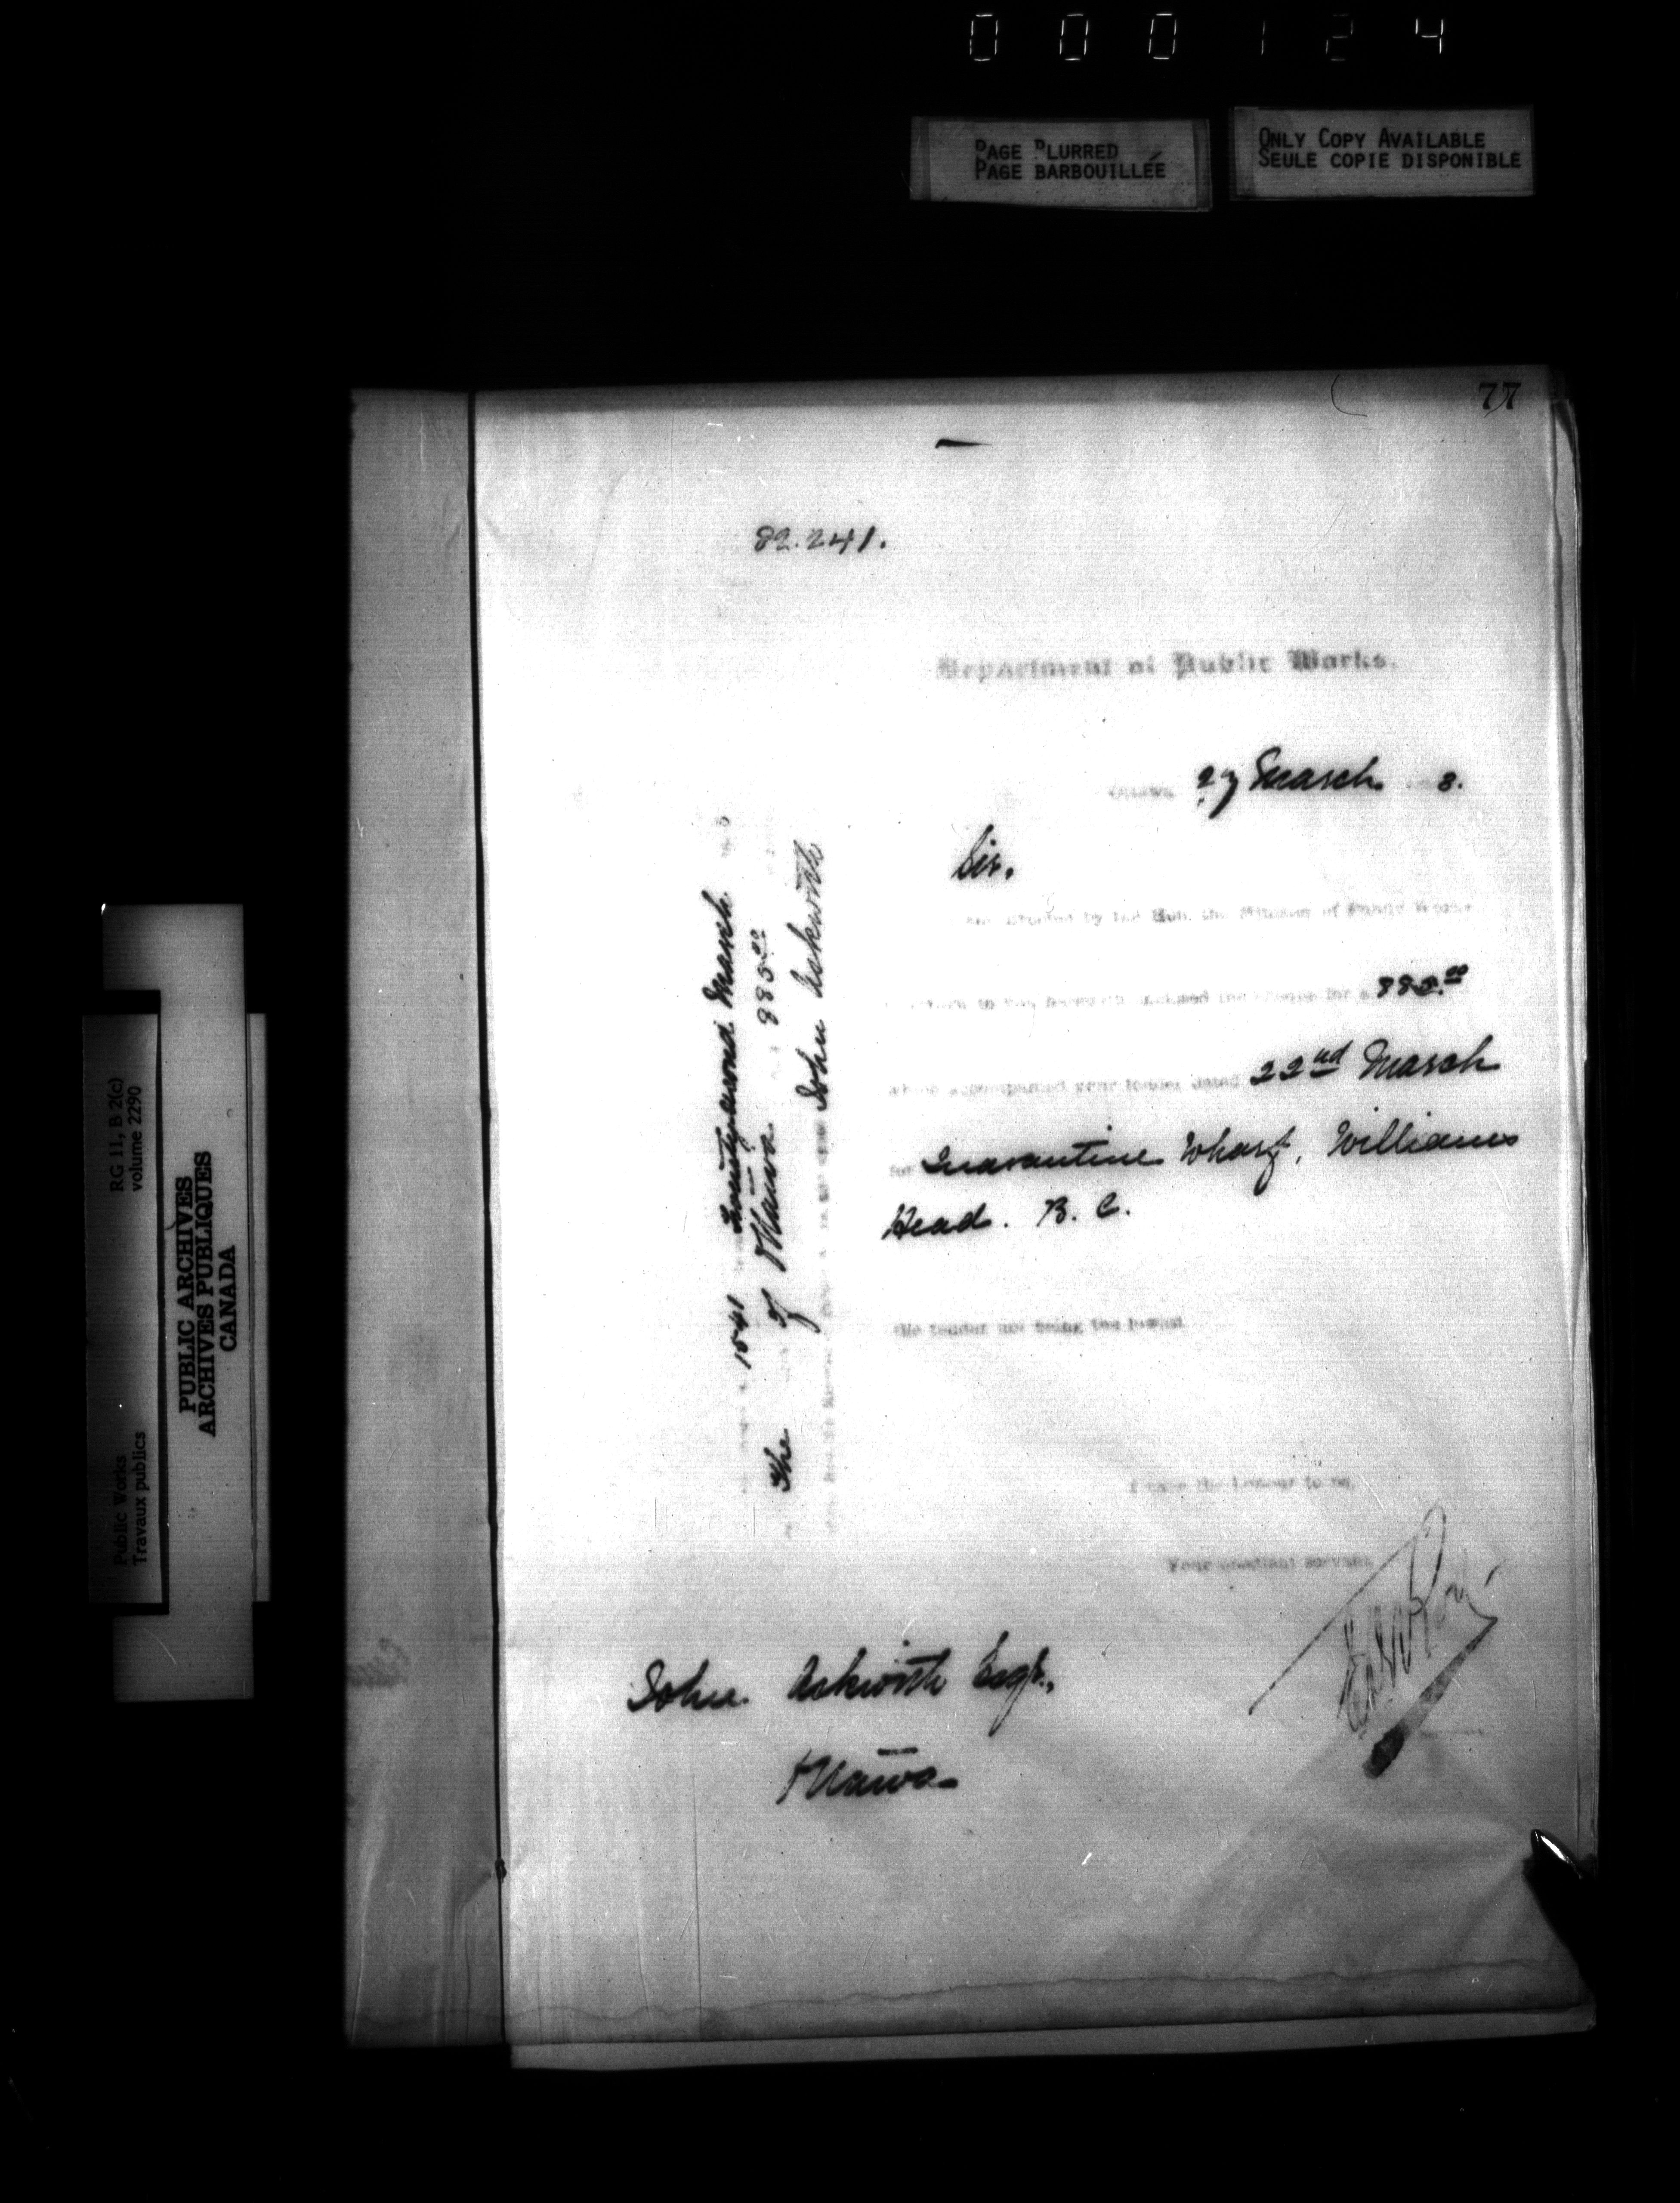 000124
PAGE BLURRED
PAGE BARBOUILLÉE
ONLY COPY AVAILABLE
SEULE COPIE DISPONIBLE
77
82.241.
Department of Public Works.
Ottawa 27 March 8.
Sir.
by the Hon. the Minister of Public Works
to you, herewith enclosed the cheque for $ 885.00
which accompanied your tender dated 22nd March
for Quarantine Wharf, Williams
Head. B. C.
the tender not being the lowest
I have the honour to be,
Your obedient servant
John Ashworth Esqr.,
Ottawa
1541 Twentysecond March
The of Ottawa 885.00
John Ashworth
RG 11, B 2(c)
volume 2290
Public Works
Travaux publics
PUBLIC ARCHIVES
ARCHIVES PUBLIQUES
CANADA